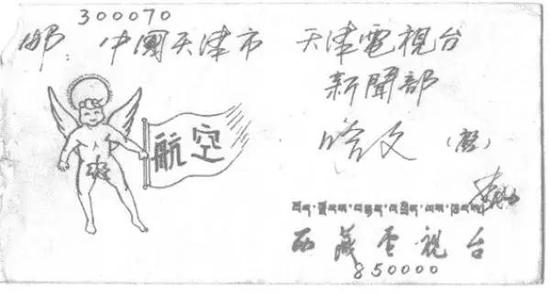 300070
邮: 中國天津市 天津電視台
新聞部
哈文 (啓)
航空
西藏電視台
850000